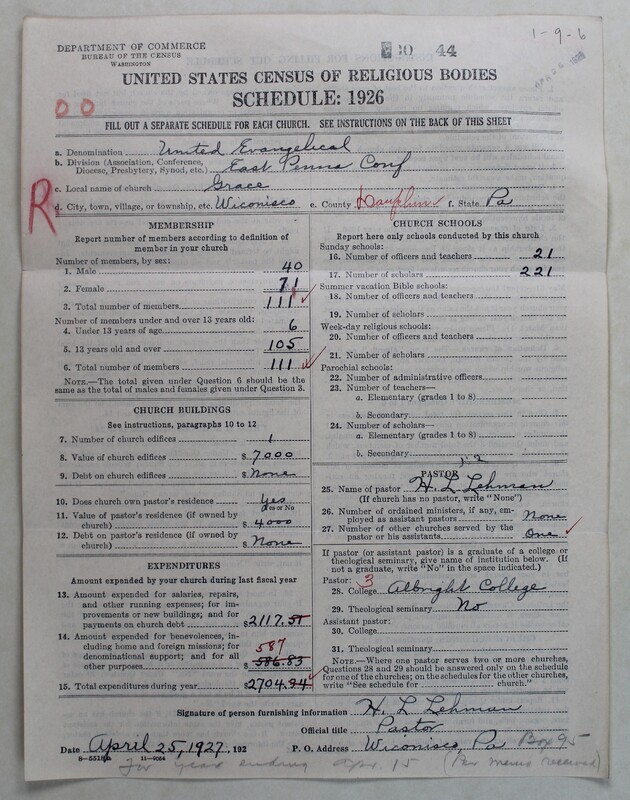 1-9-6
DEPARTMENT OF COMMERCE
BUREAU OF THE CENSUS
WASHINGTON
30 44
UNITED STATES CENSUS OF RELIGIOUS BODIES
SCHEDULE: 1926
0 0
FILL OUT A SEPARATE SCHEDULE FOR EACH CHURCH. SEE INSTRUCTIONS ON THE BACK OF THIS SHEET
a. Denomination United Evangelical
b. Division (Association, Conference, Diocese, Presbytery, Synod, etc.) East Penna Conf
c. Local name of church Grace
R
d. City, town, village, or township, etc. Wiconisco e. County Dauphin f. State Pa
MEMBERSHIP
Report number of members according to definition of
member in your church
Number of members, by sex:
1. Male 40
2. Female 71
3. Total number of members 111
Number of members under and over 13 years old:
4. Under 13 years of age 6
5. 13 years old and over 105
6. Total number of members 111
NOTE.—The total given under Question 6 should be the
same as the total of males and females given under Question 3.
CHURCH BUILDINGS
See instructions, paragraphs 10 to 12
7. Number of church edifices 1
8. Value of church edifices $ 7000
9. Debt on church edifices $ None
10. Does church own pastor's residence Yes
Yes or No
11. Value of pastor's residence (if owned by
church) $ 4000
12. Debt on pastor's residence (if owned by
church) $ None
EXPENDITURES
Amount expended by your church during last fiscal year
13. Amount expended for salaries, repairs,
and other running expenses; for im-
provements or new buildings; and for
payments on church debt $ 2117.51
14. Amount expended for benevolences, in-
cluding home and foreign missions; for
denominational support; and for all
other purposes $ 586.83
587
15. Total expenditures during year $ 2704.34
CHURCH SCHOOLS
Report here only schools conducted by this church
Sunday schools:
16. Number of officers and teachers 21
17. Number of scholars 221
Summer vacation Bible schools:
18. Number of officers and teachers
19. Number of scholars
Week-day religious schools:
20. Number of officers and teachers
21. Number of scholars
Parochial schools:
22. Number of administrative officers
23. Number of teachers—
a. Elementary (grades 1 to 8)
b. Secondary
24. Number of scholars—
a. Elementary (grades 1 to 8)
b. Secondary
PASTOR
25. Name of pastor H. L. Lehman
(If church has no pastor, write "None")
26. Number of ordained ministers, if any, em-
ployed as assistant pastors None
27. Number of other churches served by the
pastor or his assistants One
If pastor (or assistant pastor) is a graduate of a college or
theological seminary, give name of institution below. (If
not a graduate, write "No" in the space indicated.)
Pastor: 3
28. College Albright College
29. Theological seminary No
Assistant pastor:
30. College
31. Theological seminary
NOTE.—Where one pastor serves two or more churches,
Questions 28 and 29 should be answered only on the schedule
for one of the churches; on the schedules for the other churches,
write "See schedule for church."
Signature of person furnishing information H. L Lehman
Official title Pastor
Date April 25, 1927, 192 P. O. Address Wiconisco, Pa Box 95
11-9054
For year ending Apr. 15 (Per memo received)